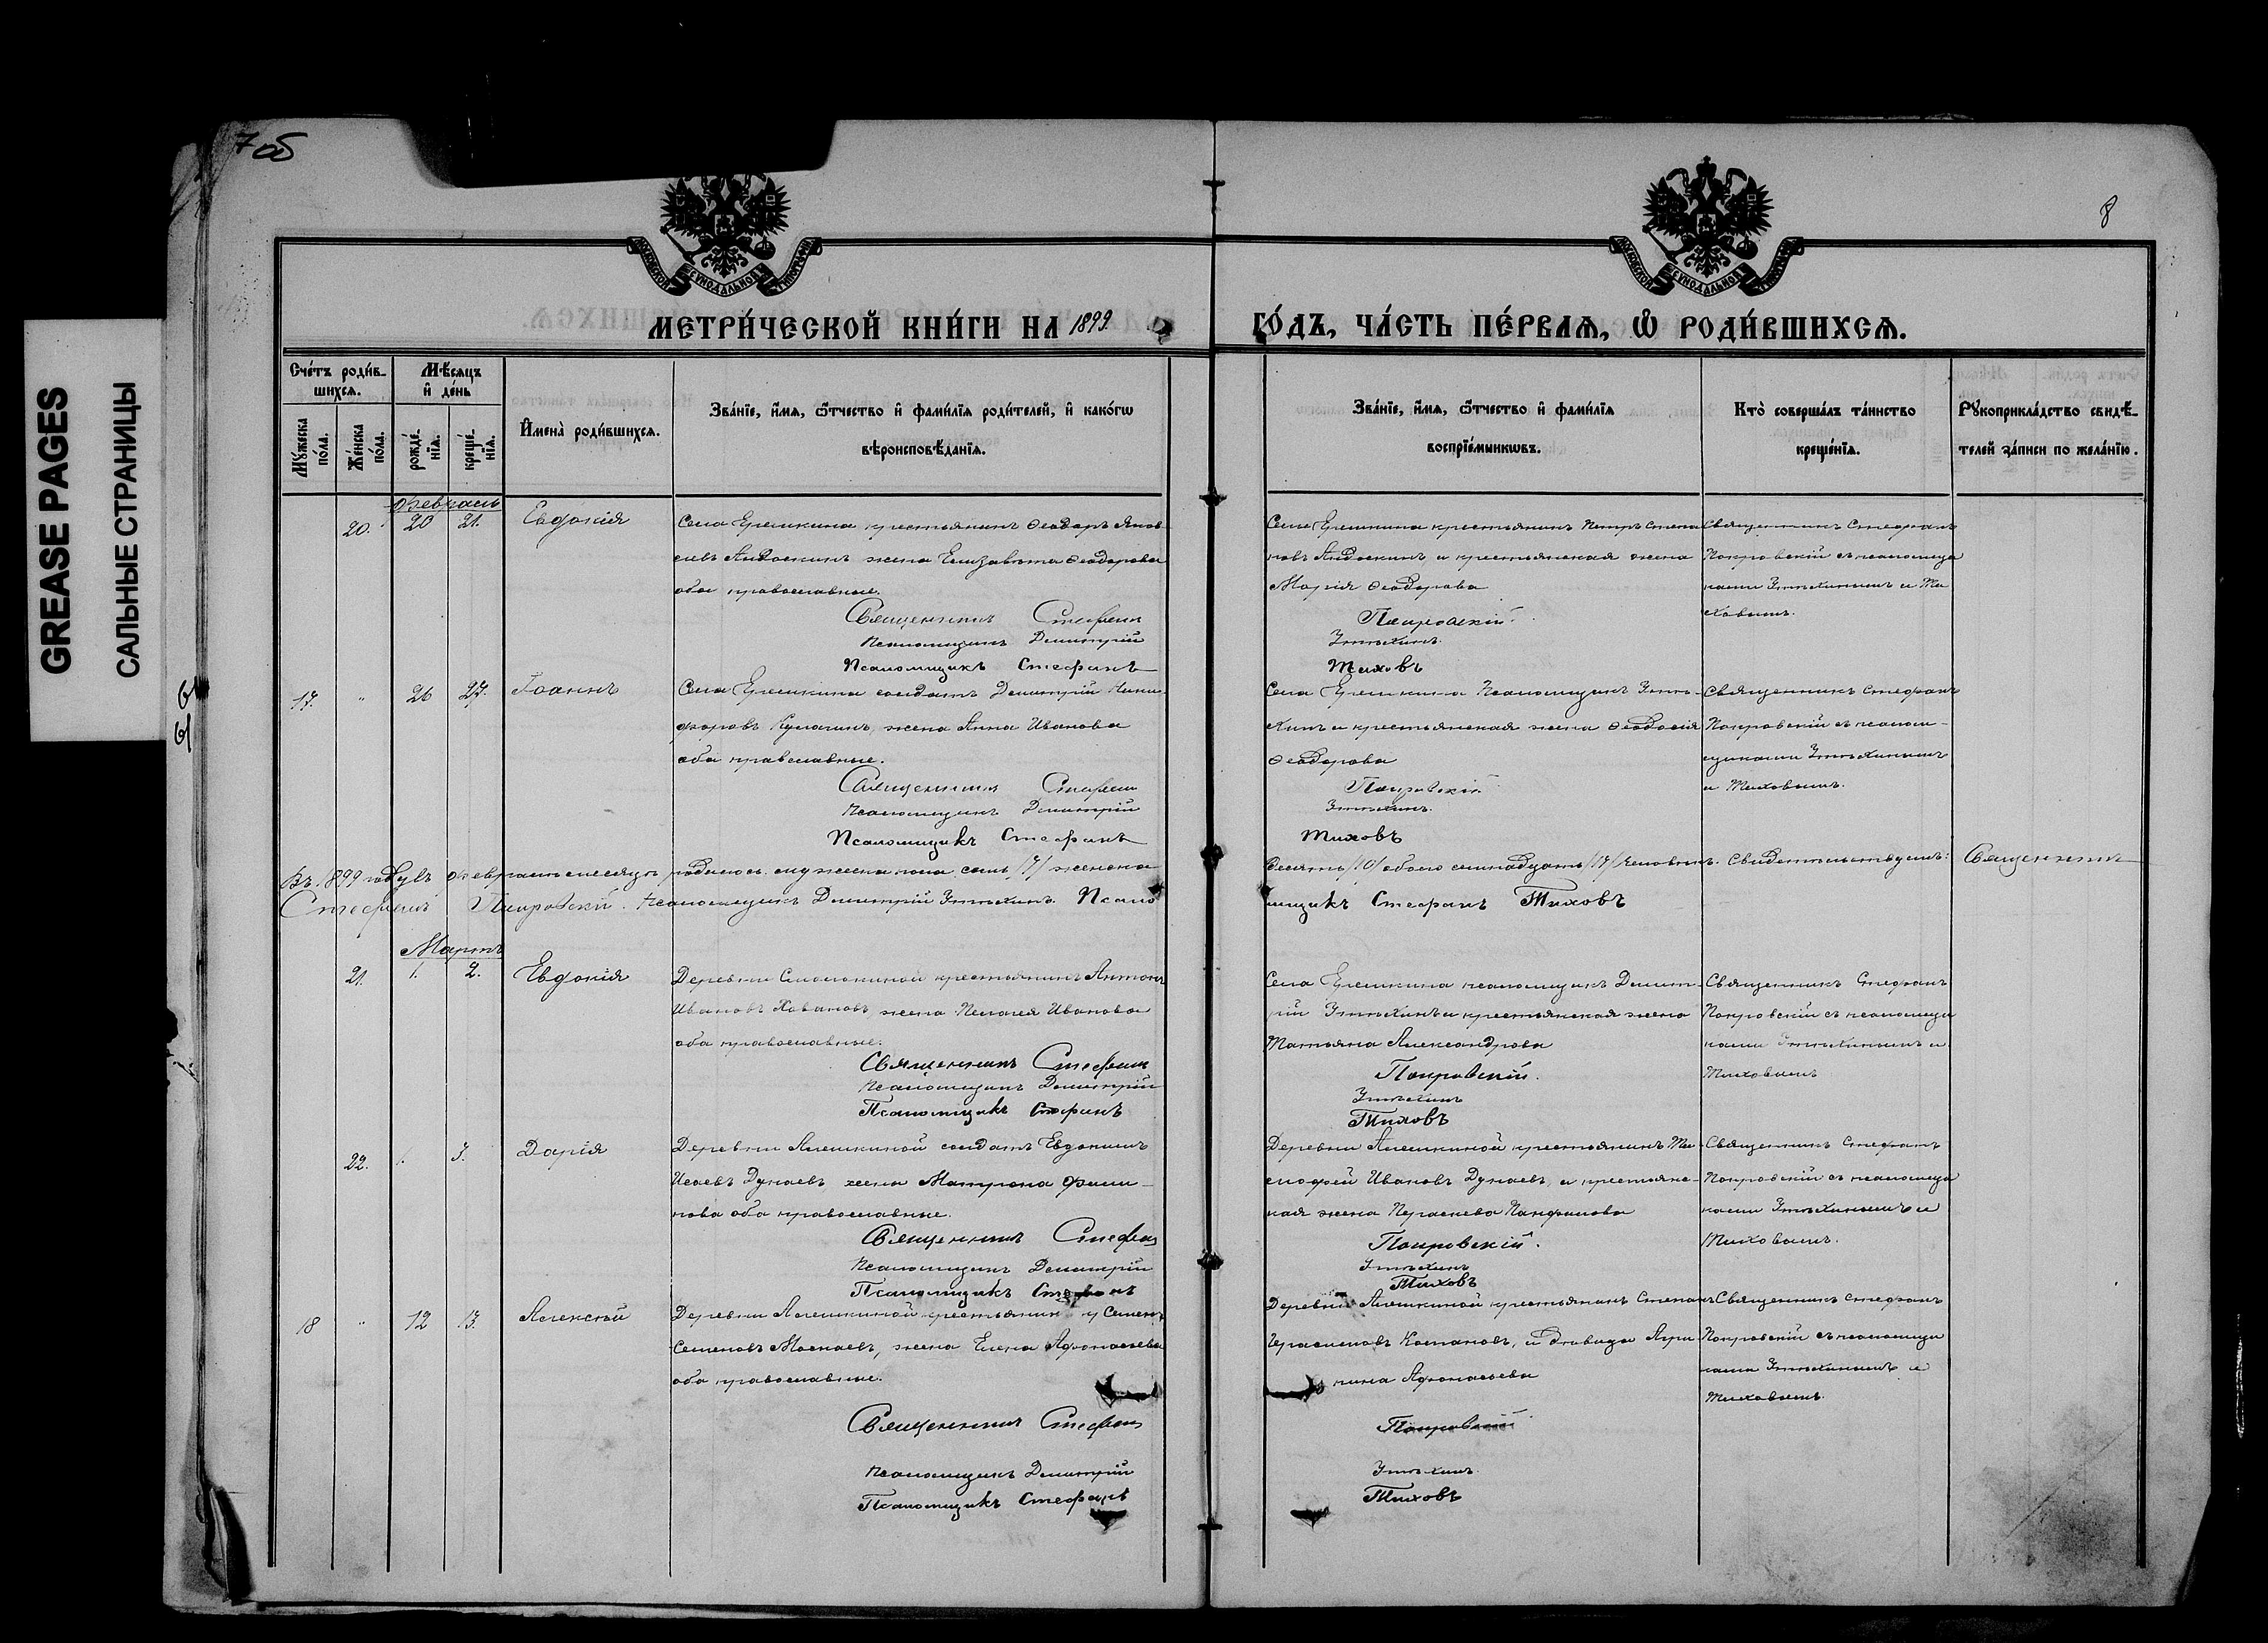 7 об
8
GREASE PAGES
САЛЬНЫЕ СТРАНИЦЫ
МЕТРИ́ЧЕСКОЙ КНИ́ГИ НА 1899.
ГО́ДЪ, ЧА́СТЬ ПЕ́РВАѦ, Ѽ РОДИ́ВШИХСѦ.
Сче́тъ роди́в-
шихсѧ.
Мꙋ́жеска по́ла.
Же́нска по́ла.
Мѣ́сѧцъ
и҆ де́нь
рожде́-нїѧ.
креще́-нїѧ.
И҆мена̀ роди́вшихсѧ.
Зва́нїе, и҆́мѧ, ѻ҆́тчество и҆ фами́лїѧ роди́телей, и҆ како́гѡ
вѣроисповѣ́данїѧ.
Зва́нїе, и҆́мѧ, ѻ҆́тчество и҆ фами́лїѧ
воспрїе́мникѡвъ.
Кто̀ соверша́лъ та́инство
креще́нїѧ.
Рꙋкоприкла́дство свидѣ́-
телей за́писи по жела́нїю.
Февраль
20. 20 21. Евдокія
Села Ерешкина крестьянинъ Ѳеодоръ Яков-
левъ жена Елизавета Ѳеодорова
оба православные.
Священникъ Стефанъ
Псаломщикъ Димитрій
Псаломщикъ Стефанъ
Села Ерешкина крестьянинъ Петръ Степа
новъ и крестьянская жена
Марія Ѳеодорова
Покровскій.
Утѣхинъ.
Тиховъ
Священникъ Стефанъ
Покровскій съ псаломщи
ками Утѣхинымъ и Ти
ховымъ.
17. " 26 27. Іоаннъ
Села Ерешкина солдатъ Димитрій Ники-
форовъ Кулагинъ, жена Анна Иванова
оба православные.
Священникъ Стефанъ
Псаломщикъ Димитрій
Псаломщикъ Стефанъ
Села Ерешкина Псаломщикъ Утѣ-
хинъ и крестьянская жена Ѳеодосія
Ѳеодорова
Покровскій
Утѣхинъ.
Тиховъ
Священникъ Стефанъ
Покровскій съ псалом-
щиками Утѣхинымъ
и Тиховымъ.
Въ 1899 году въ февралѣ мѣсяцѣ родилось мужеска пола семь /7/ женска
десять /10/ обоего семнадцать /17/ человѣкъ. Свидетельствуемъ: Священникъ
Стефанъ Покровскій. Псаломщикъ Димитрій Утѣхинъ. Псало
мщикъ Стефанъ Тиховъ
Мартъ
21. 1. 2. Евдокія
Деревни крестьянинъ Антонъ
Ивановъ жена Пелагея Иванова
оба православные.
Священникъ Стефанъ
Псаломщикъ Димитрій
Псаломщикъ Стефанъ
Села Ерешкина псаломщикъ Димит-
рій Утѣхинъ и крестьянская жена
Татьяна Александрова
Покровскій.
Утѣхинъ
Тиховъ
Священникъ Стефанъ
Покровскій съ псаломщи
ками Утѣхинымъ и
Тиховымъ
22. 1. 3. Дарія
Деревни Алешкиной солдатъ Евдокимъ
Исаевъ Дунаевъ жена Матрона Фили-
пова оба православные.
Священникъ Стефанъ
Псаломщикъ Димитрій
Псаломщикъ Стефанъ
Деревни Алешкиной крестьянинъ Ти-
мофей Ивановъ Дунаевъ, и крестьянс-
кая жена Параскева Панфилова
Покровскій.
Утѣхинъ
Тиховъ
Священникъ Стефанъ
Покровскій съ псаломщи
ками Утѣхинымъ и
Тиховымъ.
18 " 12 13. Алексѣй
Деревни Алешкиной крестьянинъ Семенъ
Семеновъ жена Елена Афонасьева
оба православные.
Священникъ Стефанъ
Псаломщикъ Димитрій
Псаломщикъ Стефанъ
Деревни Алешкиной крестьянинъ Степанъ
Герасимовъ и дѣвица
Афонасьева
Покровскій
Утѣхинъ.
Тиховъ
Священникъ Стефанъ
Покровскій съ псаломщи
ками Утѣхинымъ и
Тиховымъ.